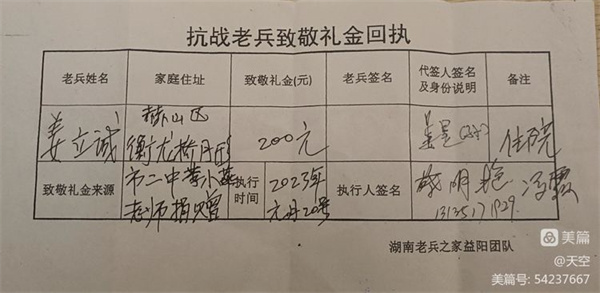 抗战老兵致敬礼金回执
老兵姓名 家庭住址 致敬礼金(元) 老兵签名 代签人签名及身份说明 备注
姜立诚 赫山区衡龙桥 200元 住院
致敬礼金来源 市二中 老师捐赠 执行时间 2023年元月20号 执行人签名
湖南老兵之家益阳团队
美篇
@天空
美篇号: 54237667